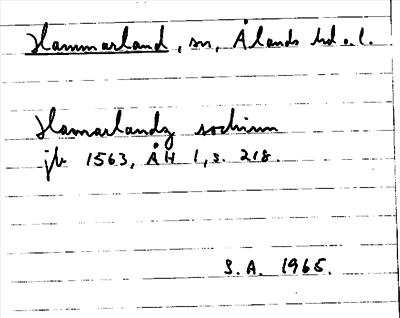 Hammarland, sn, Ålands hd o. l.
Hamarlandz sochnn
jb 1563, ÅH 1, s. 218.
S.A. 1965.